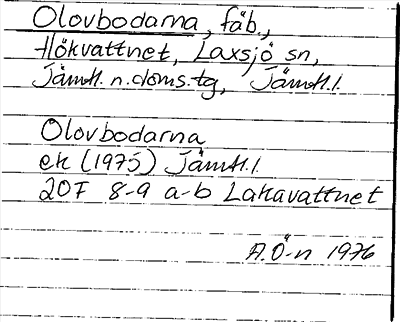 Olovbodarna, fäb.,
Hökvattnet, Laxsjö sn,
Jämtl. n. doms. tg, Jämtl. l.
Olovbodarna
ek (1975) Jämtl. l.
20F 8-9 a-b Lakavattnet
A.Ö-n 1976